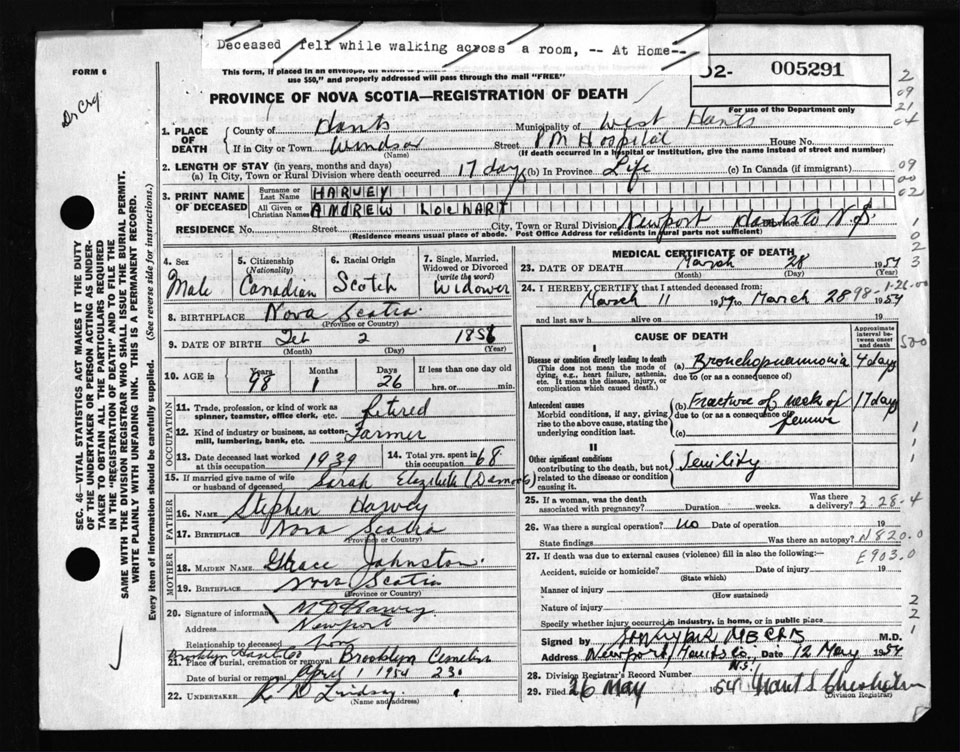 Deceased fell while walking across a room, -- At Home--
FORM 6
This form, if placed in an envelope, on which
use $50," and properly addressed will pass through the mail "FREE"
02- 005291
PROVINCE OF NOVA SCOTIA—REGISTRATION OF DEATH
For use of the Department only
1. PLACE OF DEATH
County of Hants Municipality of West Hants
If in City or Town Windsor (Name) Street P M Hospital House No.
(If death occurred in a hospital or institution, give the name instead of street and number)
2. LENGTH OF STAY (in years, months and days)
(a) In City, Town or Rural Division where death occurred 17 days (b) In Province Life (c) In Canada (if immigrant)
3. PRINT NAME OF DECEASED
Surname or Last Name HARVEY
All Given or Christian Names ANDREW LOCHART
RESIDENCE No. Street City, Town or Rural Division Newport Hants Co N.S.
(Residence means usual place of abode. Post Office Address for residents in rural parts not sufficient)
4. Sex Male
5. Citizenship (Nationality) Canadian
6. Racial Origin Scotch
7. Single, Married, Widowed or Divorced (write the word) Widower
8. BIRTHPLACE Nova Scotia
(Province or Country)
9. DATE OF BIRTH Feb 2 1856
(Month) (Day) (Year)
10. AGE Years 98 Months 1 Days 26 If less than one day old hrs. or min.
OCCUPATION
11. Trade, profession, or kind of work as spinner, teamster, office clerk, etc. Retired
12. Kind of industry or business, as cotton-mill, lumbering, bank, etc. Farmer
13. Date deceased last worked at this occupation 1939 14. Total yrs. spent in this occupation 68
15. If married give name of wife or husband of deceased Sarah Elizabeth
FATHER
16. Name Stephen Harvey
17. Birthplace Nova Scotia
(Province or Country)
MOTHER
18. MAIDEN NAME Grace Johnston
19. BIRTHPLACE Nova Scotia
(Province or Country)
20. Signature of informant M D Harvey
Address Newport
Relationship to deceased Son
Brooklyn Hants Co
21. Place of burial, cremation or removal Brooklyn Cemetery
Date of burial or removal April 1 1954
22. UNDERTAKER Lindsay
(Name and address)
MEDICAL CERTIFICATE OF DEATH
23. DATE OF DEATH March 28 1954
(Month) (Day) (Year)
24. I HEREBY CERTIFY that I attended deceased from:
March 11 1954 to March 28 1954
and last saw h alive on 19
CAUSE OF DEATH
Approximate interval between onset and death
I
Disease or condition directly leading to death
(This does not mean the mode of dying, e.g., heart failure, asthenia, etc. It means the disease, injury, or complication which caused death.)
(a) Bronchopneumonia 4 days
due to (or as a consequence of)
Antecedent causes
Morbid conditions, if any, giving rise to the above cause, stating the underlying condition last.
(b) Fracture of neck of femur 17 days
due to (or as a consequence of)
(c)
II
Other significant conditions
contributing to the death, but not related to the disease or condition causing it
Senility
25. If a woman, was the death associated with pregnancy? Duration weeks. Was there a delivery?
3-28-4
26. Was there a surgical operation? no Date of operation 19
State findings Was there an autopsy?
N820.0
27. If death was due to external causes (violence) fill in also the following:—
E903.0
Accident, suicide or homicide? Date of injury 19
(State which)
Manner of injury
(How sustained)
Nature of injury
Specify whether injury occurred in industry, in home, or in public place
Signed by M.D.
Address Newport, Hants Co. N.S. Date 12 May 1954
28. Division Registrar's Record Number
29. Filed 26 May 1954 Grant S Chisholm
(Division Registrar)
SEC. 46—VITAL STATISTICS ACT MAKES IT THE DUTY
OF THE UNDERTAKER OR PERSON ACTING AS UNDER-
TAKER TO OBTAIN ALL THE PARTICULARS REQUIRED
IN THE "REGISTRATION OF DEATH" AND TO FILE THE
SAME WITH THE DIVISION REGISTRAR WHO SHALL ISSUE THE BURIAL PERMIT.
WRITE PLAINLY WITH UNFADING INK. THIS IS A PERMANENT RECORD.
Every item of information should be carefully supplied. (See reverse side for instructions.)